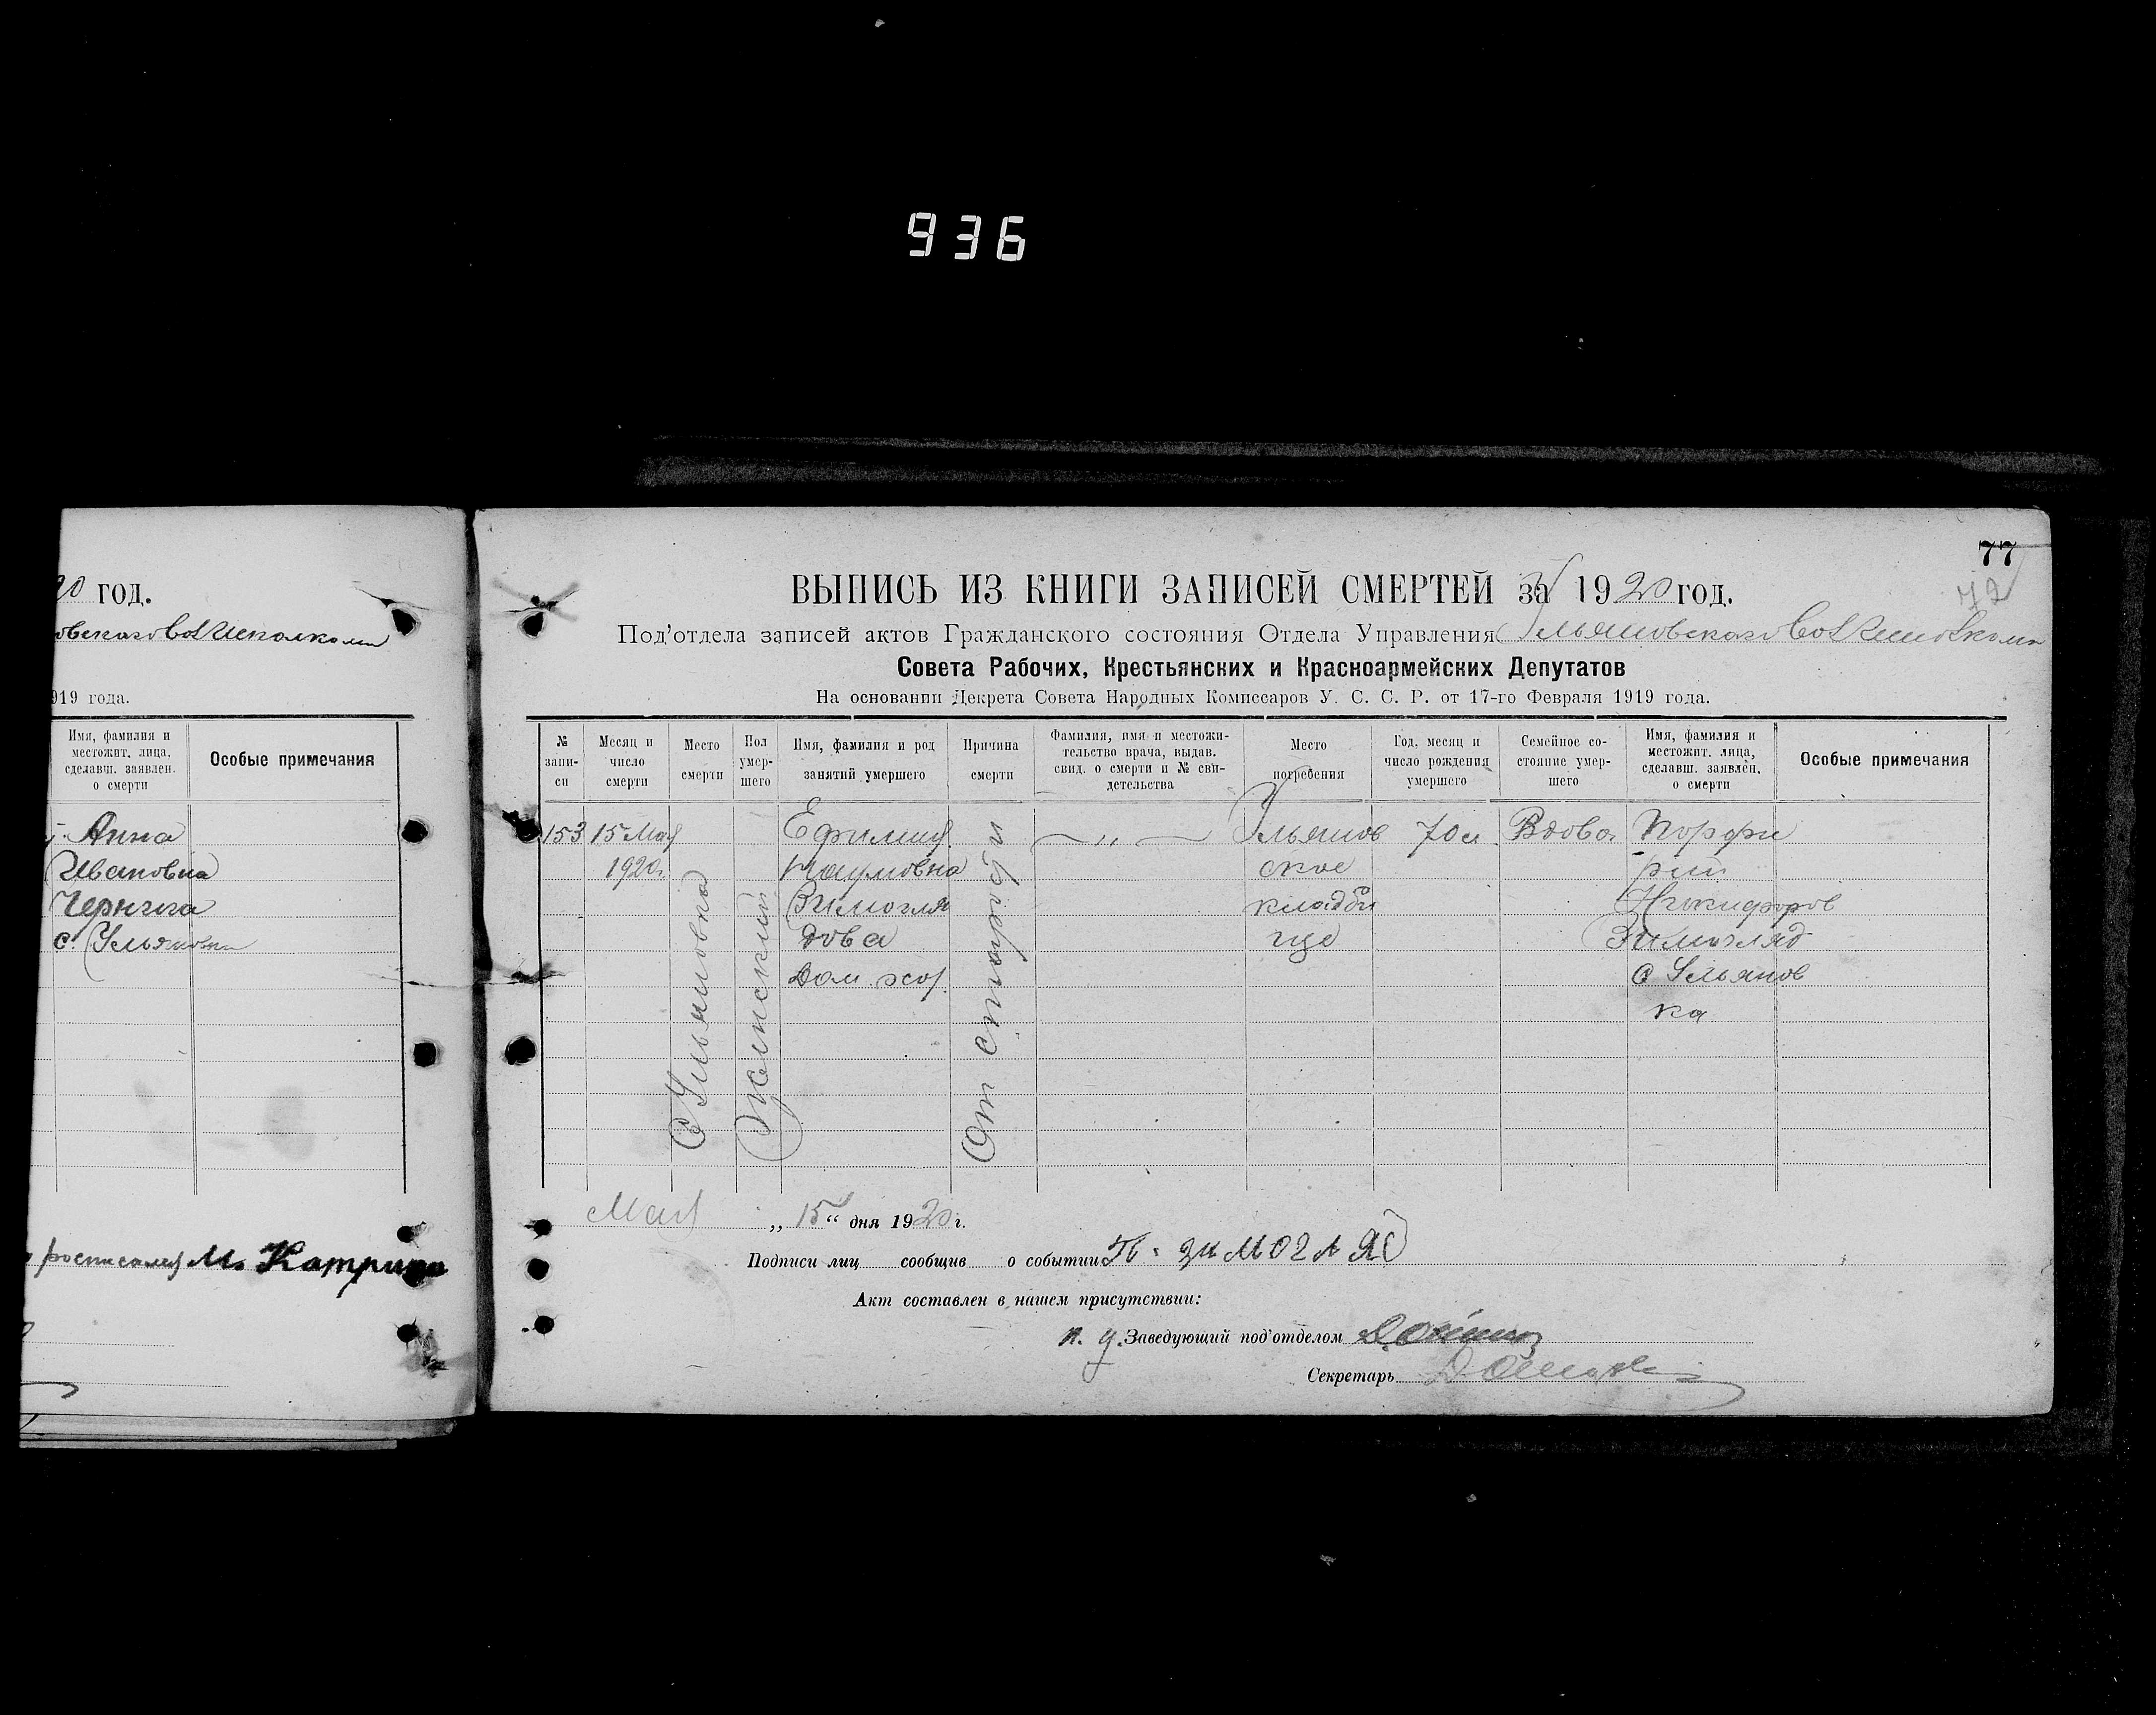 936
20 год.
овскаго Волисполкома
919 года.
Имя, фамилия и
местожит. лица,
сделавш. заявлен.
о смерти
Особые примечания
Анна
Ивановна
Чернега
с. Ульяновки
росписался М. Катрича
77
72
ВЫПИСЬ ИЗ КНИГИ ЗАПИСЕЙ СМЕРТЕЙ за 1920 год.
Под'отдела записей актов Гражданского состояния Отдела Управления Ульяновскаго
Совета Рабочих, Крестьянских и Красноармейских Депутатов
На основании Декрета Совета Народных Комиссаров У. С. С. Р. от 17-го Февраля 1919 года.
№
запи-
си
Месяц и
число
смерти
Место
смерти
Пол
умер-
шего
Имя, фамилия и род
занятий умершего
Причина
смерти
Фамилия, имя и местожи-
тельство врача, выдав.
свид. о смерти и № сви-
детельства
Место
погребения
Год, месяц и
число рождения
умершего
Семейное со-
стояние умер-
шего
Имя, фамилия и
местожит. лица,
сделавш. заявлен.
о смерти
Особые примечания
153
15 Мая
1920 г.
С Ульяновка
Женский
Ефимия
Наумовна
Зимогля
дова
Дом. хоз.
От старости
— „ —
Ульянов
ское
кладби
ще
70 л.
Вдова
Порфи
рий
Никифоров
Зимогляд
с Ульянов
ка
Мая „ 15 “ дня 1920 г.
Подписи лиц сообщив о событии П. Зимогляд
Акт составлен в нашем присутствии:
п. д. Заведующий под'отделом
Секретарь